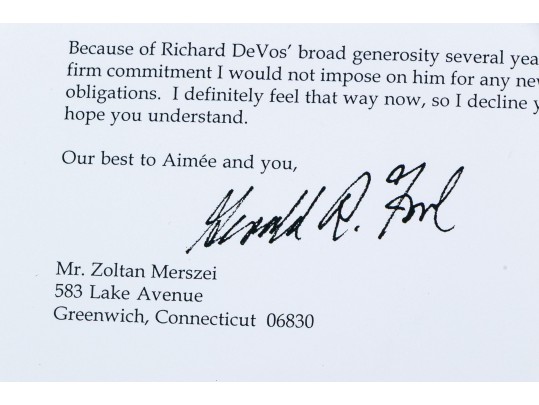 Because of Richard DeVos' broad generosity several
firm commitment I would not impose on him for any
obligations.  I definitely feel that way now, so I decline
hope you understand.
Our best to Aimée and you,
Gerald R. Ford
Mr. Zoltan Merszei
583 Lake Avenue
Greenwich, Connecticut  06830